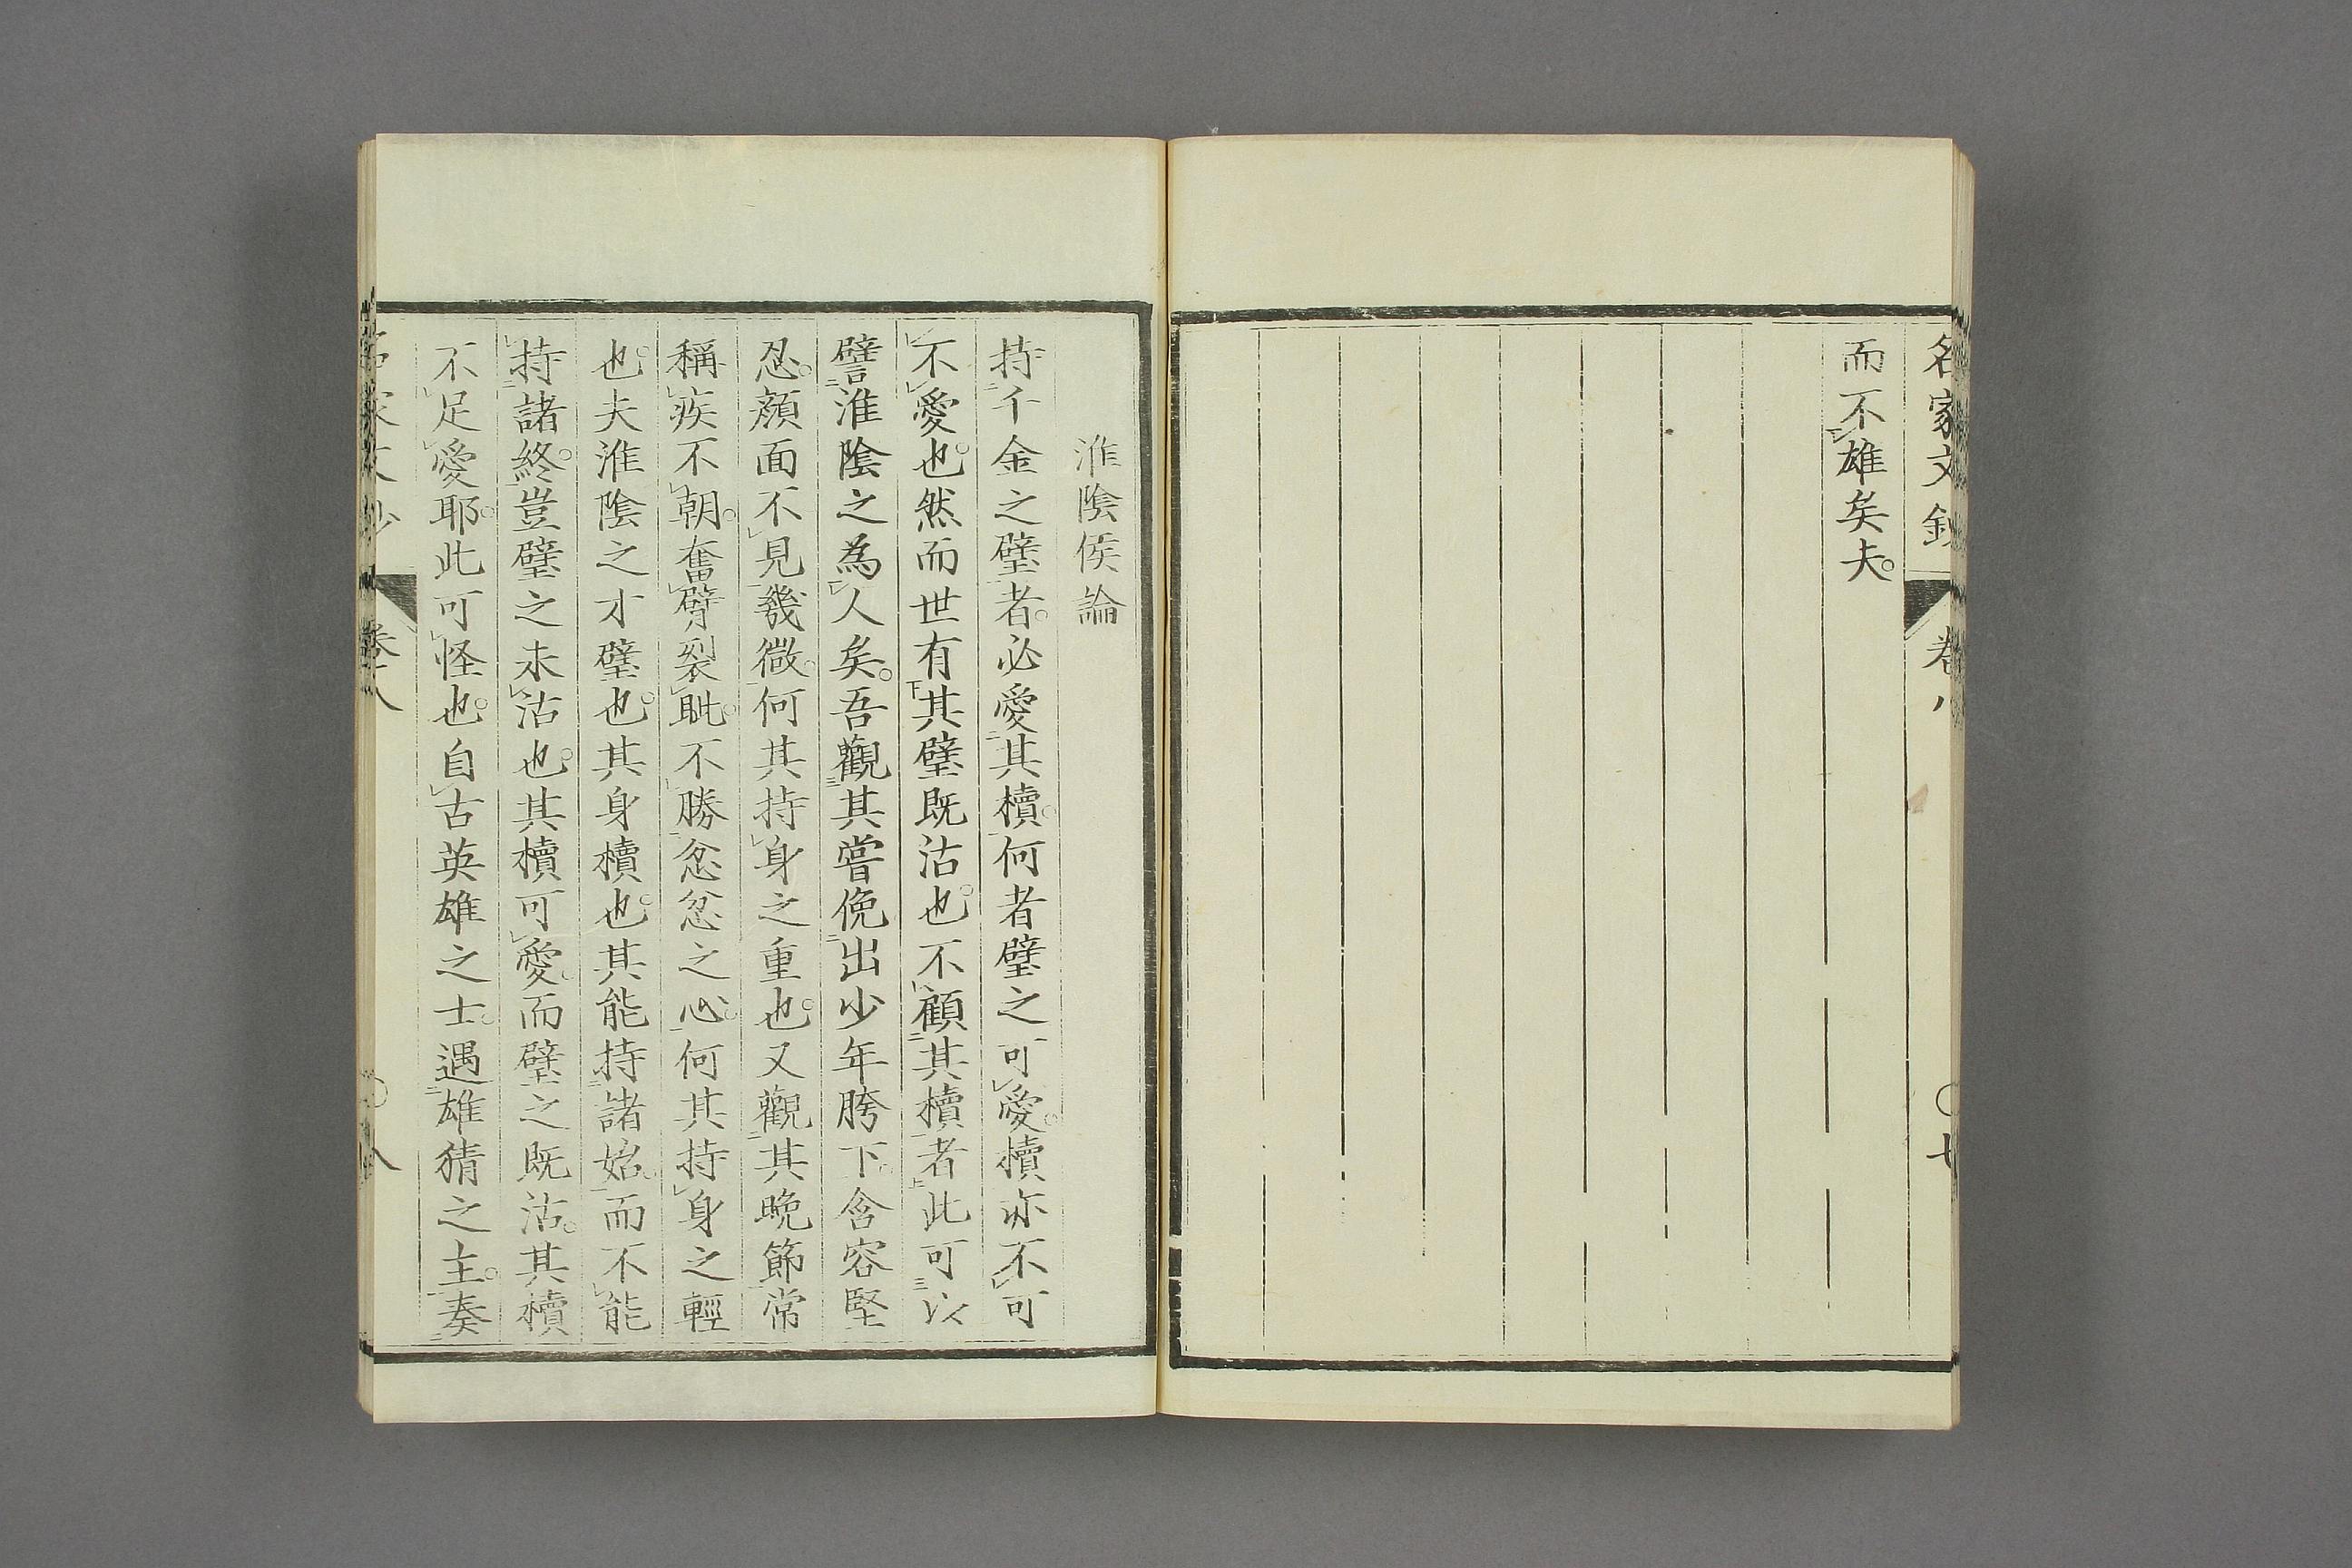 名家文鈔
卷八
七
而不雄矣夫。
淮陰侯論
持千金之璧者。必愛其櫝。何者璧之可愛。櫝亦不可
不愛也。然而世有其璧既沽也。不顧其櫝者此可以
譬淮陰之為人矣。吾觀其嘗俛出少年胯下。含容堅
忍。顏面不見幾微。何其持身之重也。又觀其晚節常
稱疾不朝。奮臂裂眦。不勝忿忿之心。何其持身之輕
也。夫淮陰之才璧也。其身櫝也。其能持諸始。而不能
持諸終。豈璧之未沽也。其櫝可愛。而璧之既沽。其櫝
不足愛耶。此可怪也。自古英雄之士。遇雄猜之主。奏
卷八
八